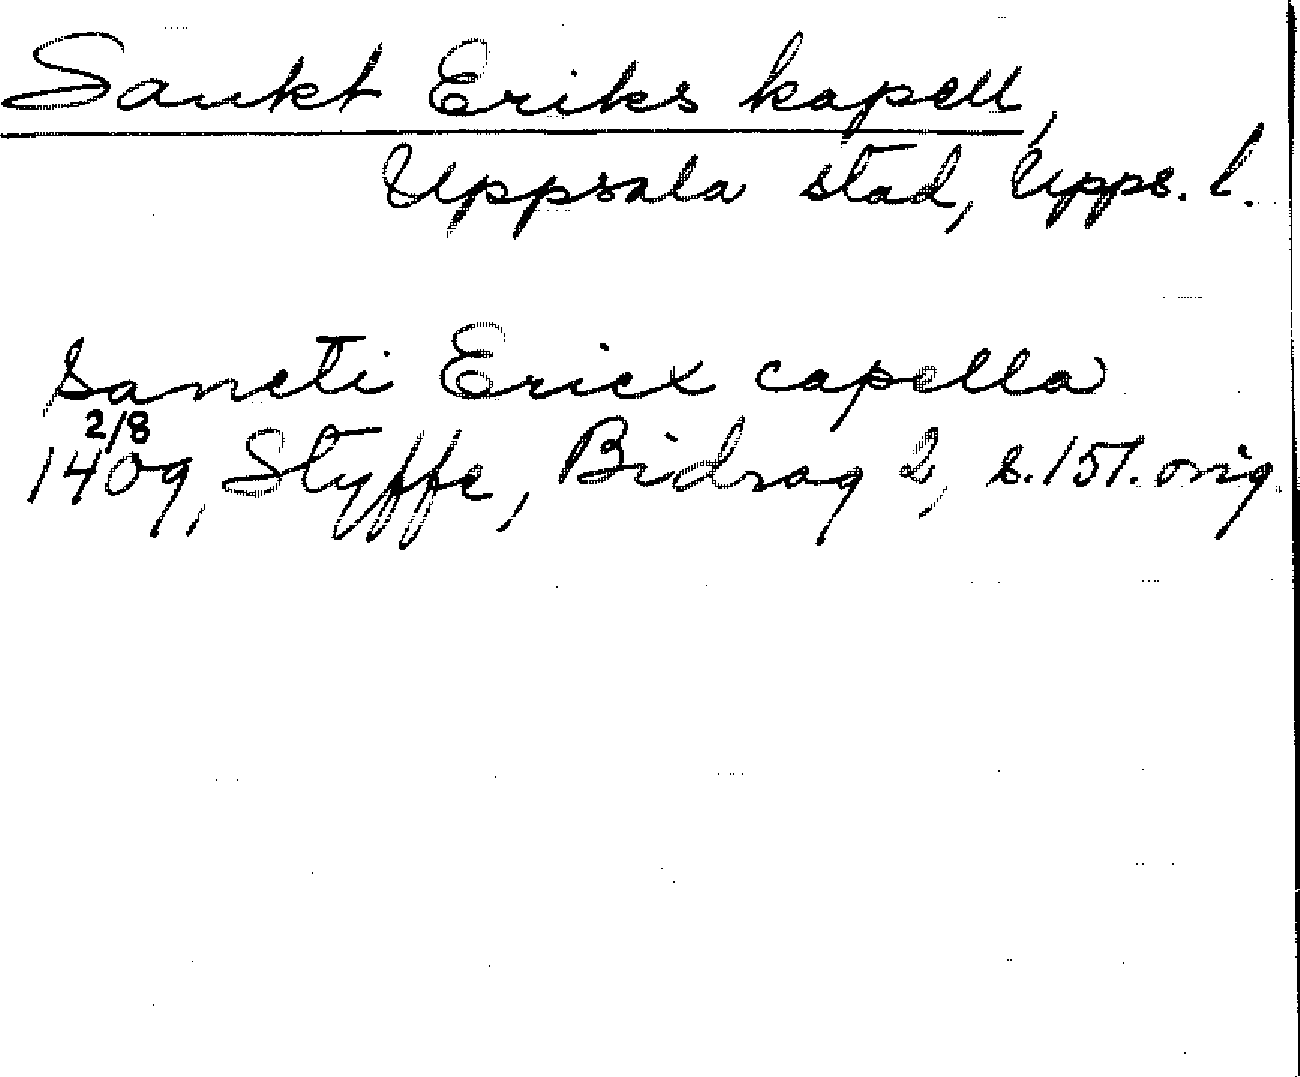 Sankt Eriks kapell,
Uppsala stad, Upps. l.
sancti Ericx capella
2/8
1409, Styffe, Bidrag 2, s. 151. orig.